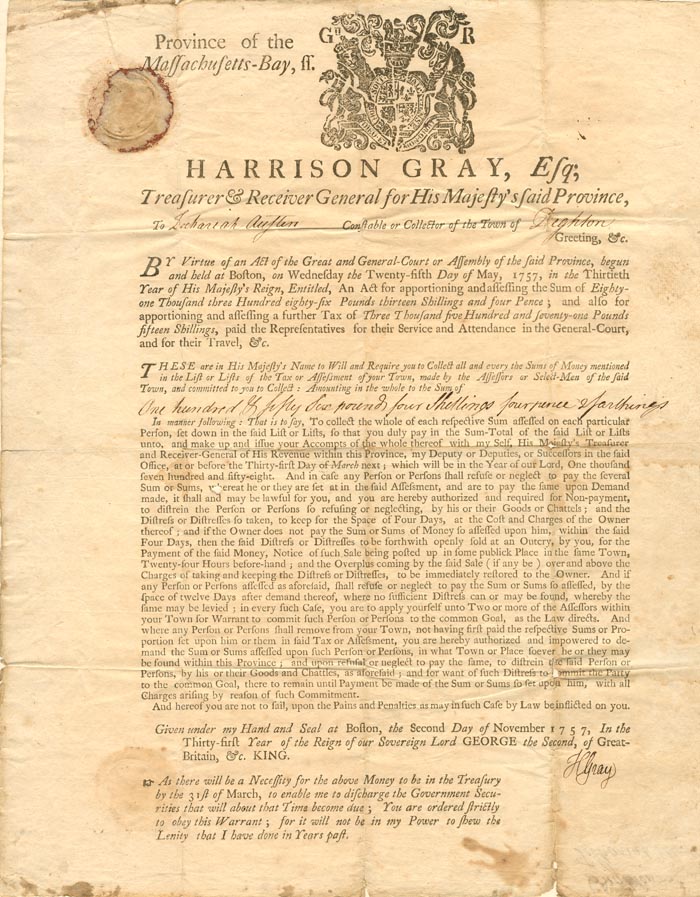 Province of the
Maſſachuſetts-Bay, ſſ.
G II R
HARRISON GRAY, Eſq;
Treaſurer & Receiver General for His Majeſty's ſaid Province,
To Zechariah Austen Conſtable or Collector of the Town of Dighton
Greeting, &c.
BY Virtue of an Act of the Great and General-Court or Aſſembly of the ſaid Province, begun
and held at Boſton, on Wedneſday the Twenty-fifth Day of May, 1757, in the Thirtieth
Year of His Majeſty's Reign, Entitled, An Act for apportioning and aſſeſſing the Sum of Eighty-
one Thouſand three Hundred eighty-ſix Pounds thirteen Shillings and four Pence; and alſo for
apportioning and aſſeſſing a further Tax of Three Thouſand five Hundred and ſeventy-one Pounds
fifteen Shillings, paid the Repreſentatives for their Service and Attendance in the General-Court,
and for their Travel, &c.
THESE are in His Majeſty's Name to Will and Require you to Collect all and every the Sums of Money mentioned
in the Liſt or Liſts of the Tax or Aſſeſſment of your Town, made by the Aſſeſſors or Select-Men of the ſaid
Town, and committed to you to Collect: Amounting in the whole to the Sum of
One hundred & fifty Six pounds four Shillings fourpence 2 farthings
In manner following: That is to ſay, To collect the whole of each reſpective Sum aſſeſſed on each particular
Perſon, ſet down in the ſaid Liſt or Liſts, ſo that you duly pay in the Sum-Total of the ſaid Liſt or Liſts
unto, and make up and iſſue your Accompts of the whole thereof with my Self, His Majeſty's Treaſurer
and Receiver-General of His Revenue within this Province, my Deputy or Deputies, or Succeſſors in the ſaid
Office, at or before the Thirty-firſt Day of March next; which will be in the Year of our Lord, One thouſand
ſeven hundred and fifty-eight. And in caſe any Perſon or Perſons ſhall refuſe or neglect to pay the ſeveral
Sum or Sums, whereat he or they are ſet at in the ſaid Aſſeſſment, and are to pay the ſame upon Demand
made, it ſhall and may be lawful for you, and you are hereby authorized and required for Non-payment,
to diſtrein the Perſon or Perſons ſo refuſing or neglecting, by his or their Goods or Chattels; and the
Diſtreſs or Diſtreſſes ſo taken, to keep for the Space of Four Days, at the Coſt and Charges of the Owner
thereof; and if the Owner does not pay the Sum or Sums of Money ſo aſſeſſed upon him, within the ſaid
Four Days, then the ſaid Diſtreſs or Diſtreſſes to be forthwith openly ſold at an Outcry, by you, for the
Payment of the ſaid Money, Notice of ſuch Sale being poſted up in ſome publick Place in the ſame Town,
Twenty-four Hours before-hand; and the Overplus coming by the ſaid Sale (if any be) over and above the
Charges of taking and keeping the Diſtreſs or Diſtreſſes, to be immediately reſtored to the Owner. And if
any Perſon or Perſons aſſeſſed as aforeſaid, ſhall refuſe or neglect to pay the Sum or Sums ſo aſſeſſed, by the
ſpace of twelve Days after demand thereof, where no ſufficient Diſtreſs can or may be found, whereby the
ſame may be levied; in every ſuch Caſe, you are to apply yourſelf unto Two or more of the Aſſeſſors within
your Town for Warrant to commit ſuch Perſon or Perſons to the common Goal, as the Law directs. And
where any Perſon or Perſons ſhall remove from your Town, not having firſt paid the reſpective Sums or Pro-
portion ſet upon him or them in ſaid Tax or Aſſeſſment, you are hereby authorized and impowered to de-
mand the Sum or Sums aſſeſſed upon ſuch Perſon or Perſons, in what Town or Place ſoever he or they may
be found within this Province; and upon refuſal or neglect to pay the ſame, to diſtrein the ſaid Perſon or
Perſons, by his or their Goods and Chattles, as aforeſaid; and for want of ſuch Diſtreſs to commit the Party
to the common Goal, there to remain until Payment be made of the Sum or Sums ſo ſet upon him, with all
Charges ariſing by reaſon of ſuch Commitment.
And hereof you are not to fail, upon the Pains and Penalties as may in ſuch Caſe by Law be inflicted on you.
Given under my Hand and Seal at Boſton, the Second Day of November 1757, In the
Thirty-firſt Year of the Reign of our Sovereign Lord GEORGE the Second, of Great-
Britain, &c. KING.
HGray
☞ As there will be a Neceſſity for the above Money to be in the Treaſury
by the 31ſt of March, to enable me to diſcharge the Government Secu-
rities that will about that Time become due; You are ordered ſtrictly
to obey this Warrant; for it will not be in my Power to ſhew the
Lenity that I have done in Years paſt.